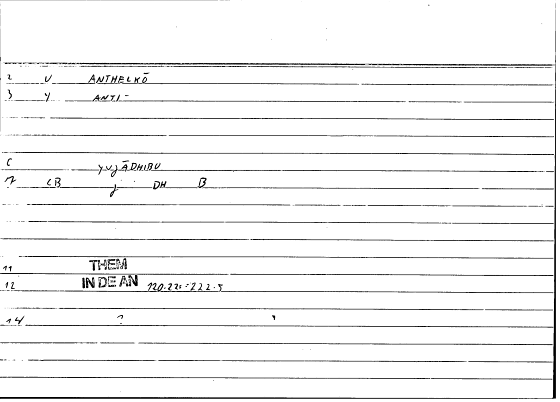 2 V ANTHELKŌ
3 Y ANTI-
C yujĀDHIBU
7 CB j DH B
11 THEM
12 IN DE AN 120.221-222.5
14 ?